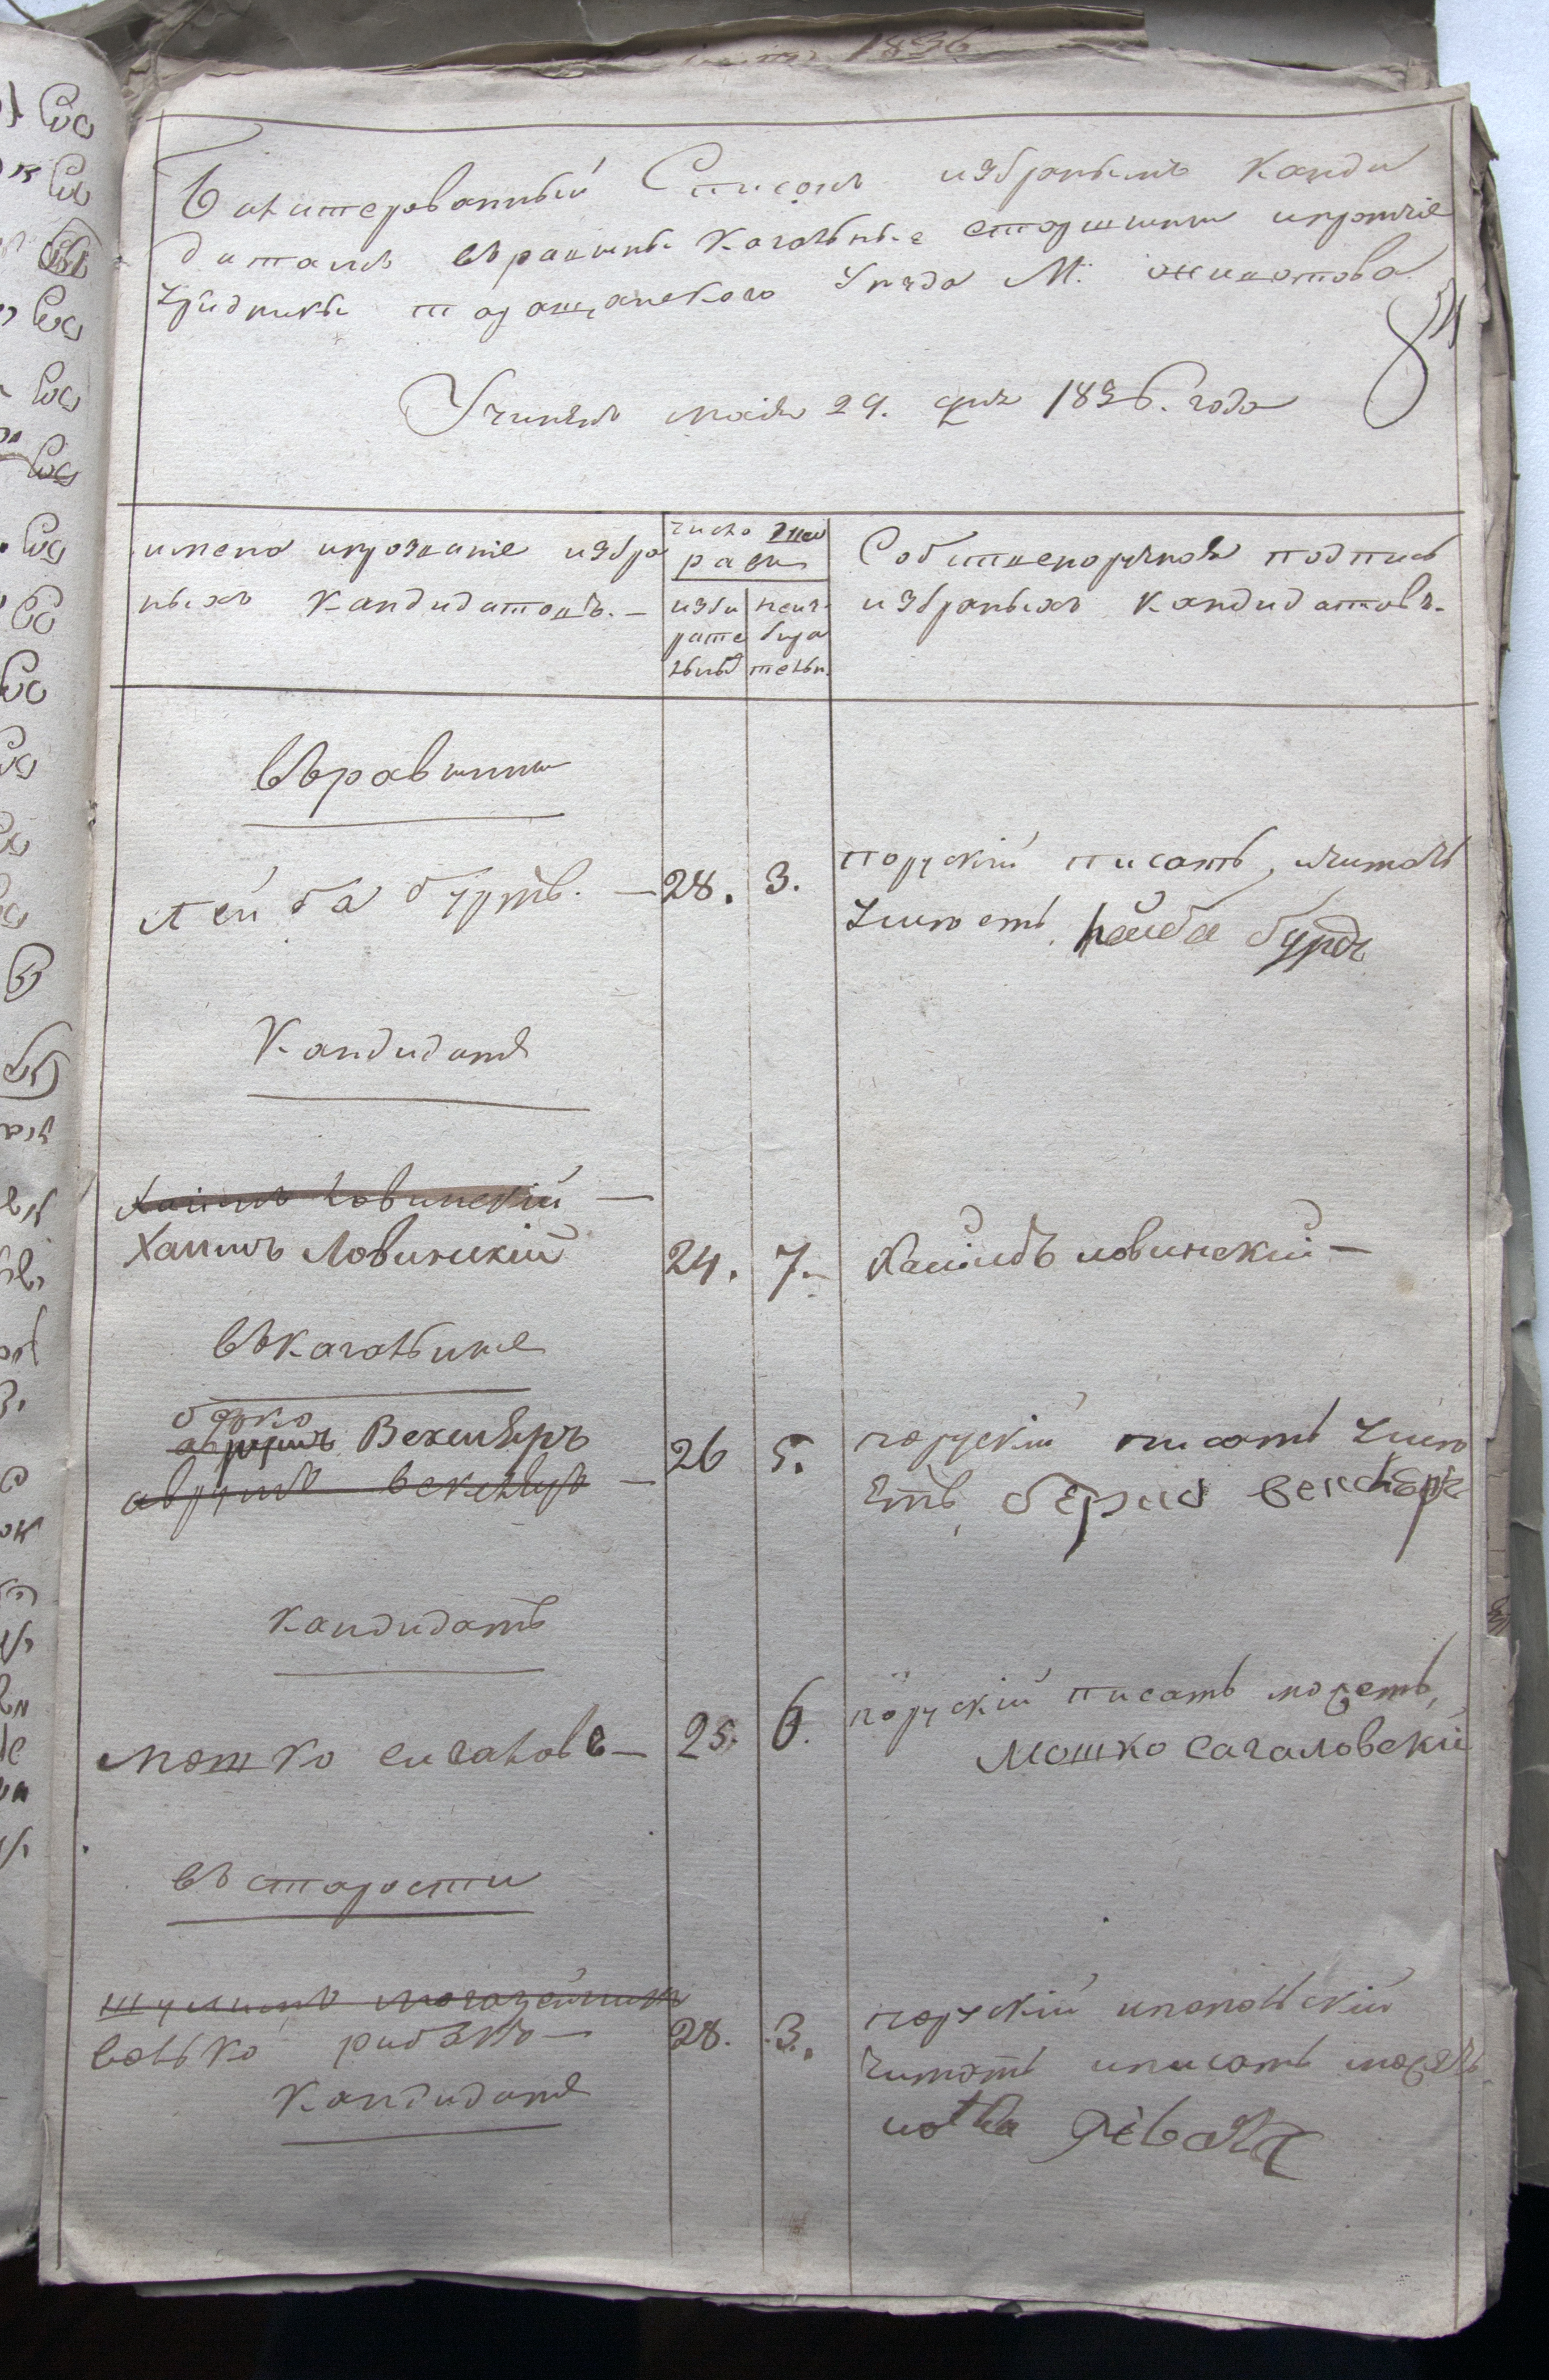 1836
Балатерованный Списокъ избранымъ Канди
датамъ въ равины Кагальные старшины и протчіе
урядники таращанского Уезда М: животова
84
Учиненъ маія 29. дня 1836. года
имена и прозваніе избра
ныхъ Кандидатовъ. —
число
избы
рате
льныхъ
неиз
бира
тельн.
Собственоручная подпись
избраныхъ Кандидатовъ.
въ равины
Лейба бурдъ. — 28. 3.
поруский писать, читать
умеетъ, Лейба бурдъ
Кандидатъ
Хаимъ Ловинский —
Хаимъ Ловинский 24. 7. Хаимъ Ловинский —
въ Кагальные
берко
аврумъ Векслеръ 26 5.
аврумъ векслеръ —
поруский писать уме
етъ, берко векслеръ
кандидатъ
мошко сигаловъ — 25. 6.
поруский писать можетъ,
Мошко Сагаловский
въ старости
волько рибакъ — 28. 3.
поруский и польский
читать и писать можетъ
Кандидатъ